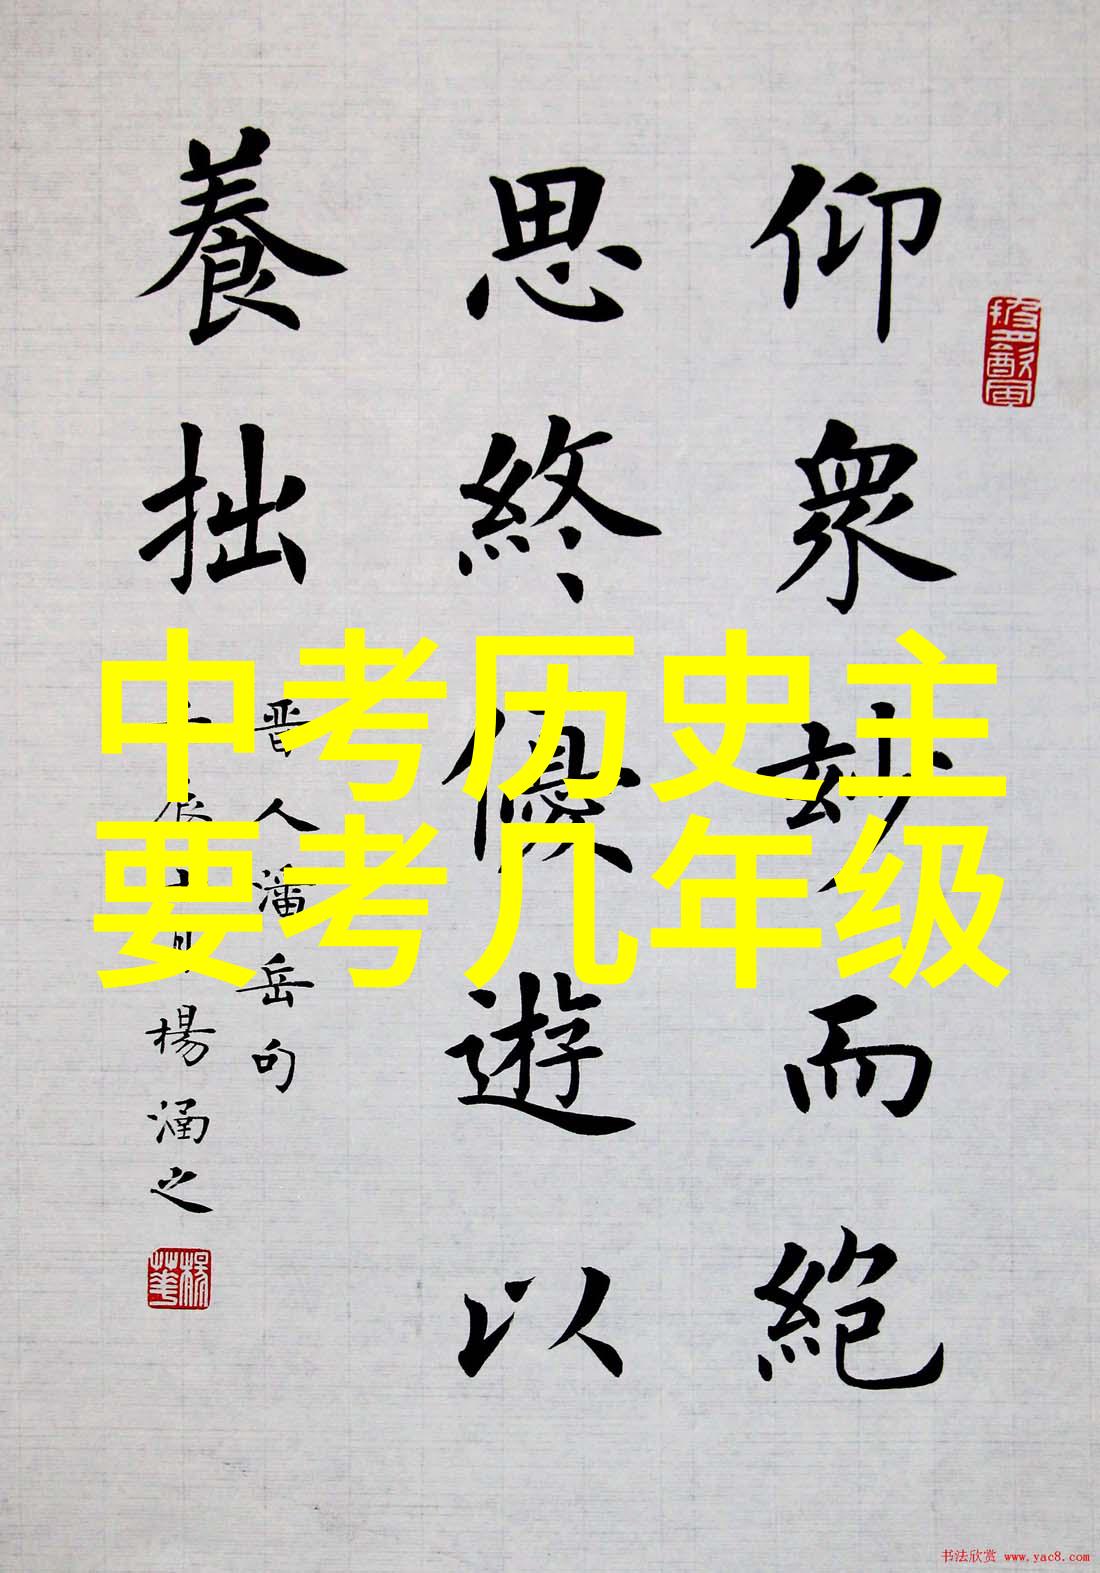 仰衆妙而絶
思終優遊以
養拙
晋人潘岳句
楊涵之
中考历史主
要考几年级
书法欣赏 www.yac8.com